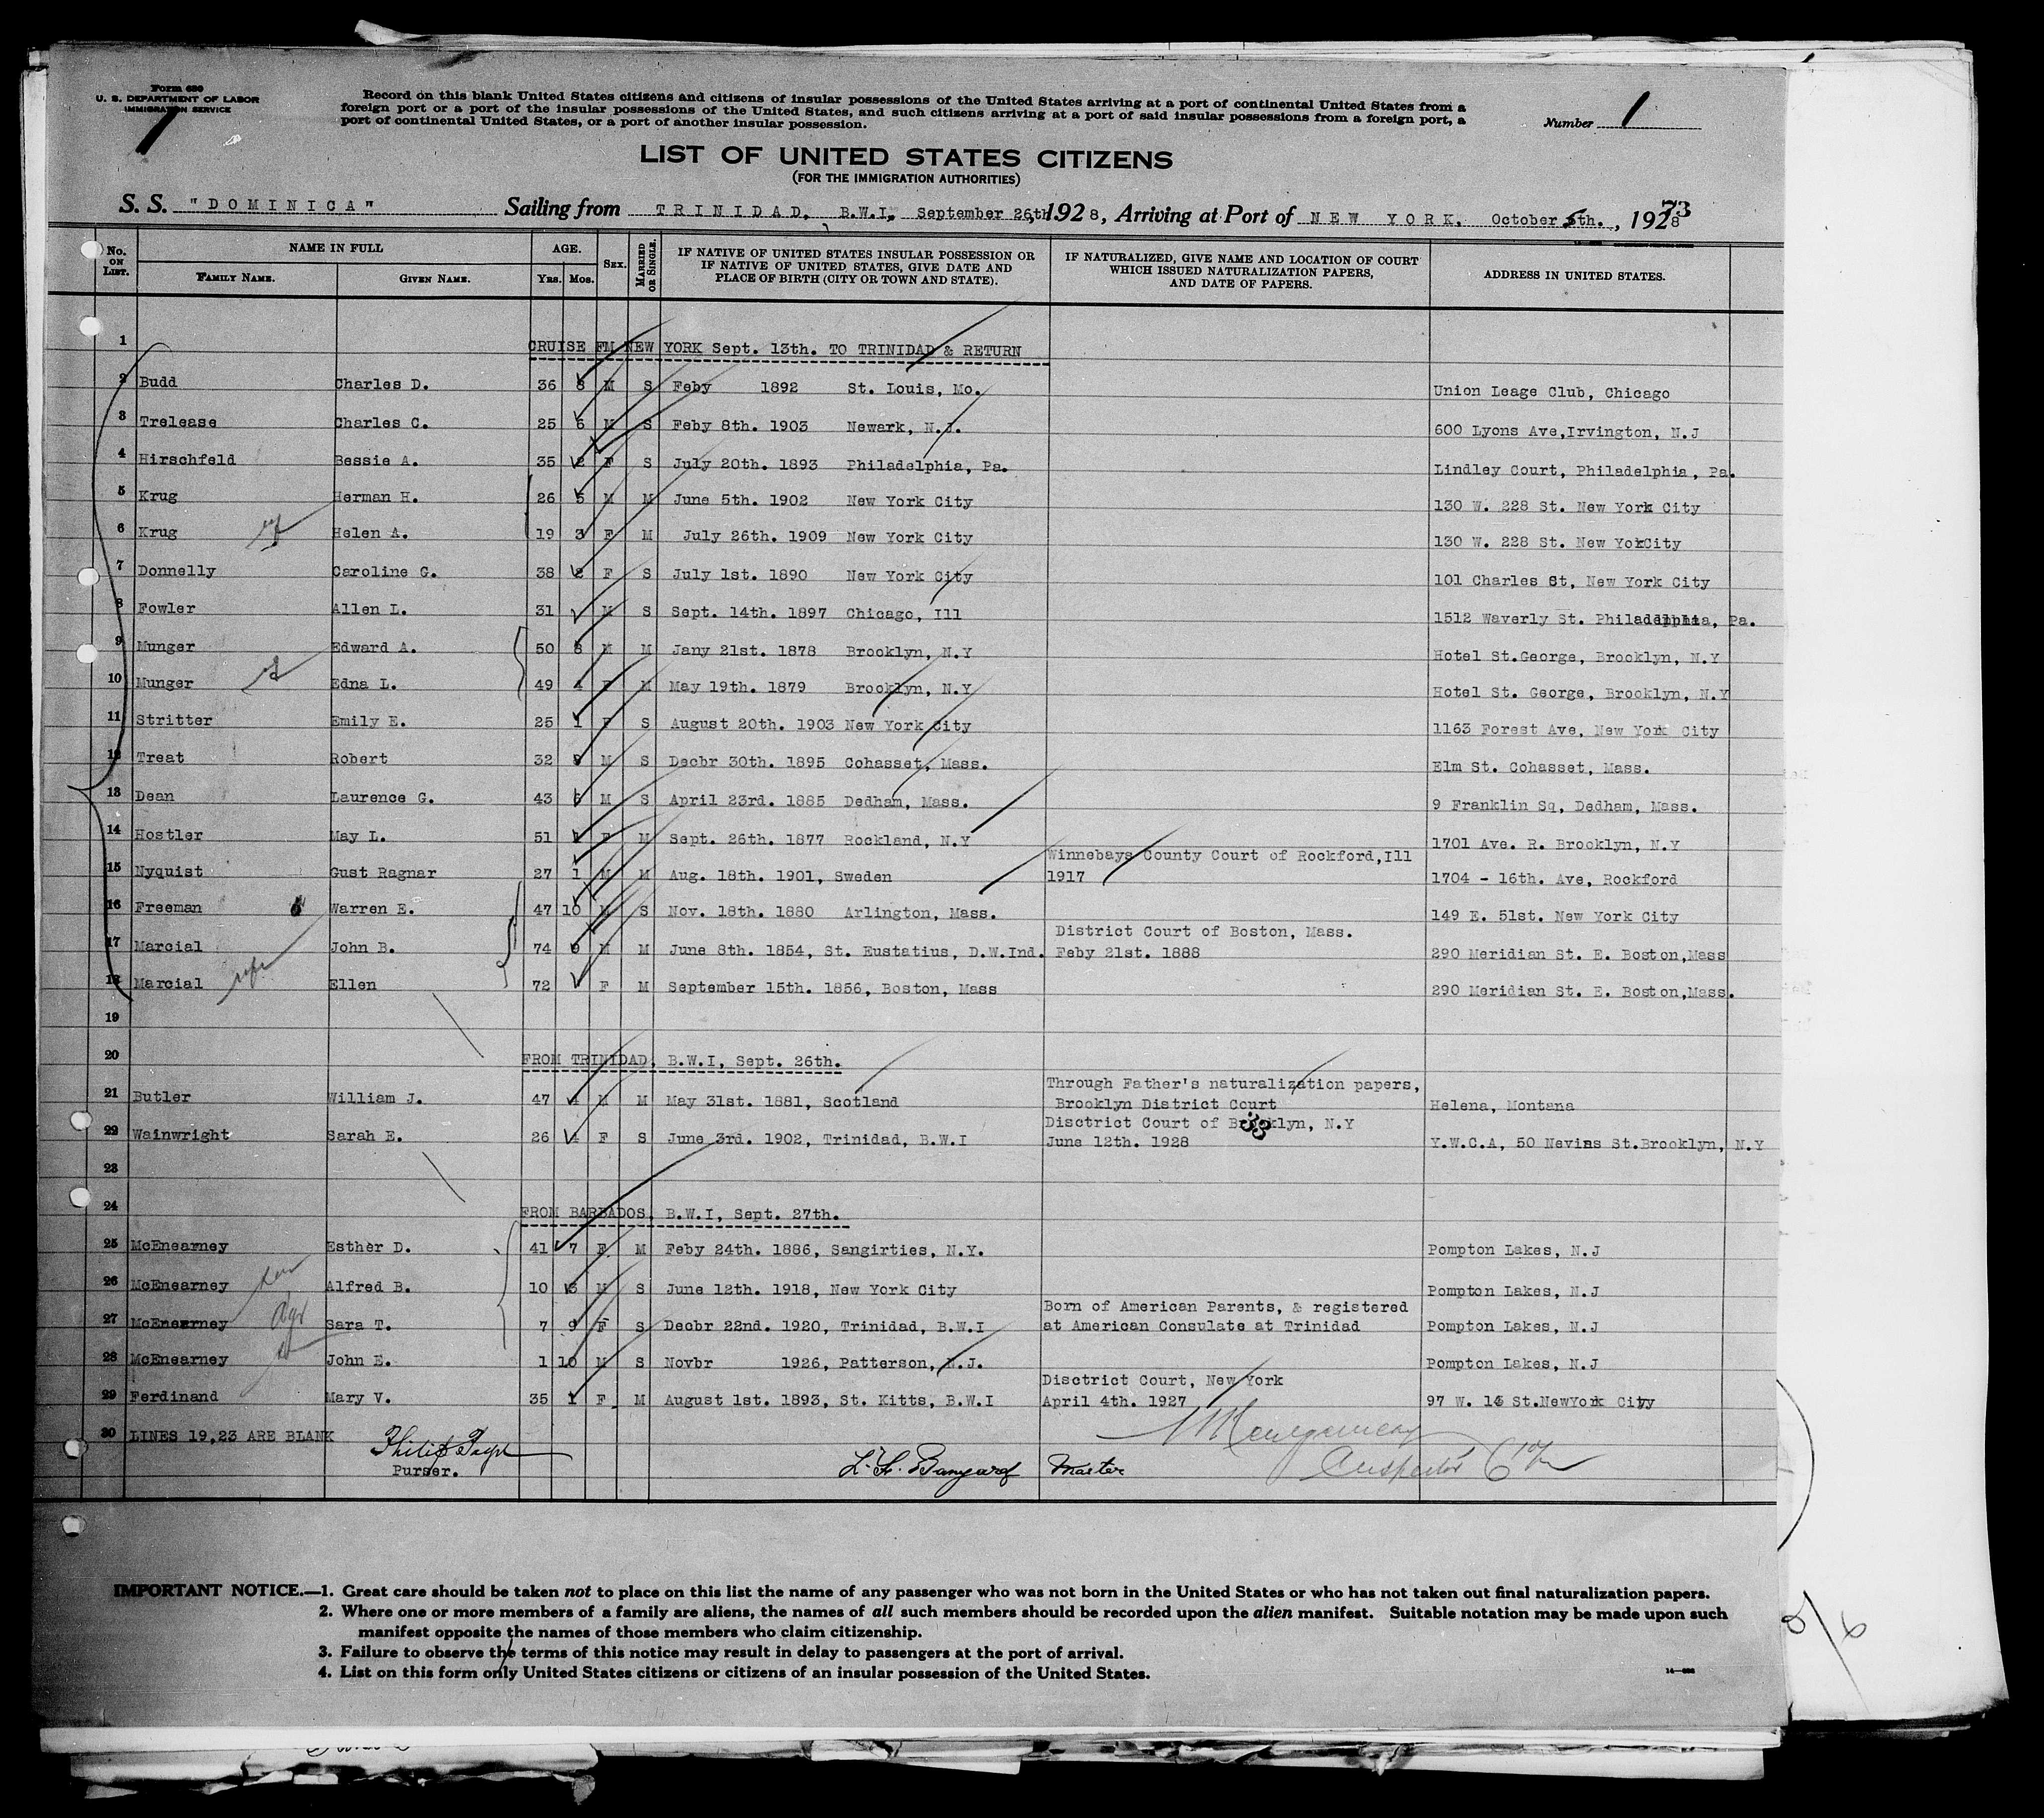 Form 630
U. S. DEPARTMENT OF LABOR
IMMIGRATION SERVICE
1
Record on this blank United States citizens and citizens of insular possessions of the United States arriving at a port of continental United States from a
foreign port or a port of the insular possessions of the United States, and such citizens arriving at a port of said insular possessions from a foreign port, a
port of continental United States, or a port of another insular possession.
Number 1
LIST OF UNITED STATES CITIZENS
(FOR THE IMMIGRATION AUTHORITIES)
S. S. "DOMINICA" Sailing from TRINIDAD, B.W.I, September 26th, 1928, Arriving at Port of NEW YORK, October 5th., 1928
73
No. ON LIST. NAME IN FULL AGE. SEX. MARRIED OR SINGLE. IF NATIVE OF UNITED STATES INSULAR POSSESSION OR IF NATIVE OF UNITED STATES, GIVE DATE AND PLACE OF BIRTH (CITY OR TOWN AND STATE). IF NATURALIZED, GIVE NAME AND LOCATION OF COURT WHICH ISSUED NATURALIZATION PAPERS, AND DATE OF PAPERS. ADDRESS IN UNITED STATES.
FAMILY NAME. GIVEN NAME. YRS. MOS.
1 CRUISE FM NEW YORK Sept. 13th. TO TRINIDAD & RETURN
2 Budd Charles D. 36 8 M S Feby 1892 St. Louis, Mo. Union Leage Club, Chicago
3 Trelease Charles C. 25 6 M S Feby 8th. 1903 Newark, N.J. 600 Lyons Ave,Irvington, N.J
4 Hirschfeld Bessie A. 35 2 F S July 20th. 1893 Philadelphia, Pa. Lindley Court, Philadelphia, Pa.
5 Krug Herman H. 26 5 M M June 5th. 1902 New York City 130 W. 228 St. New York City
6 Krug wf Helen A. 19 3 F M July 26th. 1909 New York City 130 W. 228 St. New YorkCity
7 Donnelly Caroline G. 38 2 F S July 1st. 1890 New York City 101 Charles St, New York City
8 Fowler Allen L. 31 M S Sept. 14th. 1897 Chicago, Ill 1512 Waverly St. Philadelphia, Pa.
9 Munger Edward A. 50 8 M M Jany 21st. 1878 Brooklyn, N.Y Hotel St.George, Brooklyn, N.Y
10 Munger wf Edna L. 49 4 F M May 19th. 1879 Brooklyn, N.Y Hotel St. George, Brooklyn, N.Y
11 Stritter Emily E. 25 1 F S August 20th. 1903 New York City 1163 Forest Ave, New York City
12 Treat Robert 32 9 M S Decbr 30th. 1895 Cohasset, Mass. Elm St. Cohasset, Mass.
13 Dean Laurence G. 43 5 M S April 23rd. 1885 Dedham, Mass. 9 Franklin Sq, Dedham, Mass.
14 Hostler May L. 51 1 F M Sept. 26th. 1877 Rockland, N.Y 1701 Ave. R. Brooklyn, N.Y
Winnebays County Court of Rockford,Ill
15 Nyquist Gust Ragnar 27 1 M M Aug. 18th. 1901, Sweden 1917 1704 - 16th. Ave, Rockford
16 Freeman Warren E. 47 10 M S Nov. 18th. 1880 Arlington, Mass. 149 E. 51st. New York City
District Court of Boston, Mass.
17 Marcial John B. 74 9 M M June 8th. 1854, St. Eustatius, D.W.Ind. Feby 21st. 1888 290 Meridian St. E. Boston,Mass
18 Marcial wfe Ellen 72 F M September 15th. 1856, Boston, Mass 290 Meridian St. E. Boston,Mass.
19
20 FROM TRINIDAD, B.W.I, Sept. 26th.
Through Father's naturalization papers,
21 Butler William J. 47 4 M M May 31st. 1881, Scotland Brooklyn District Court Helena, Montana
Disctrict Court of Brooklyn, N.Y
22 Wainwright Sarah E. 26 4 F S June 3rd. 1902, Trinidad, B.W.I June 12th. 1928 Y.W.C.A, 50 Nevins St.Brooklyn, N.Y
23
24 FROM BARBADOS, B.W.I, Sept. 27th.
25 McEnearney Esther D. 41 7 F M Feby 24th. 1886, Sangirties, N.Y. Pompton Lakes, N.J
26 McEnearney son Alfred B. 10 3 M S June 12th. 1918, New York City Pompton Lakes, N.J
Born of American Parents, & registered
27 McEnearney dgt Sara T. 7 9 F S Decbr 22nd. 1920, Trinidad, B.W.I at American Consulate at Trinidad Pompton Lakes, N.J
28 McEnearney John E. 1 10 M S Novbr 1926, Patterson, N.J. Pompton Lakes, N.J
Disctrict Court, New York
29 Ferdinand Mary V. 35 1 F M August 1st. 1893, St. Kitts, B.W.I April 4th. 1927 97 W. 14 St.NewYork City
30 LINES 19,23 ARE BLANK
Purser. Master
Montgomery
Inspector
IMPORTANT NOTICE.—1. Great care should be taken not to place on this list the name of any passenger who was not born in the United States or who has not taken out final naturalization papers.
2. Where one or more members of a family are aliens, the names of all such members should be recorded upon the alien manifest. Suitable notation may be made upon such
manifest opposite the names of those members who claim citizenship.
3. Failure to observe the terms of this notice may result in delay to passengers at the port of arrival.
4. List on this form only United States citizens or citizens of an insular possession of the United States.